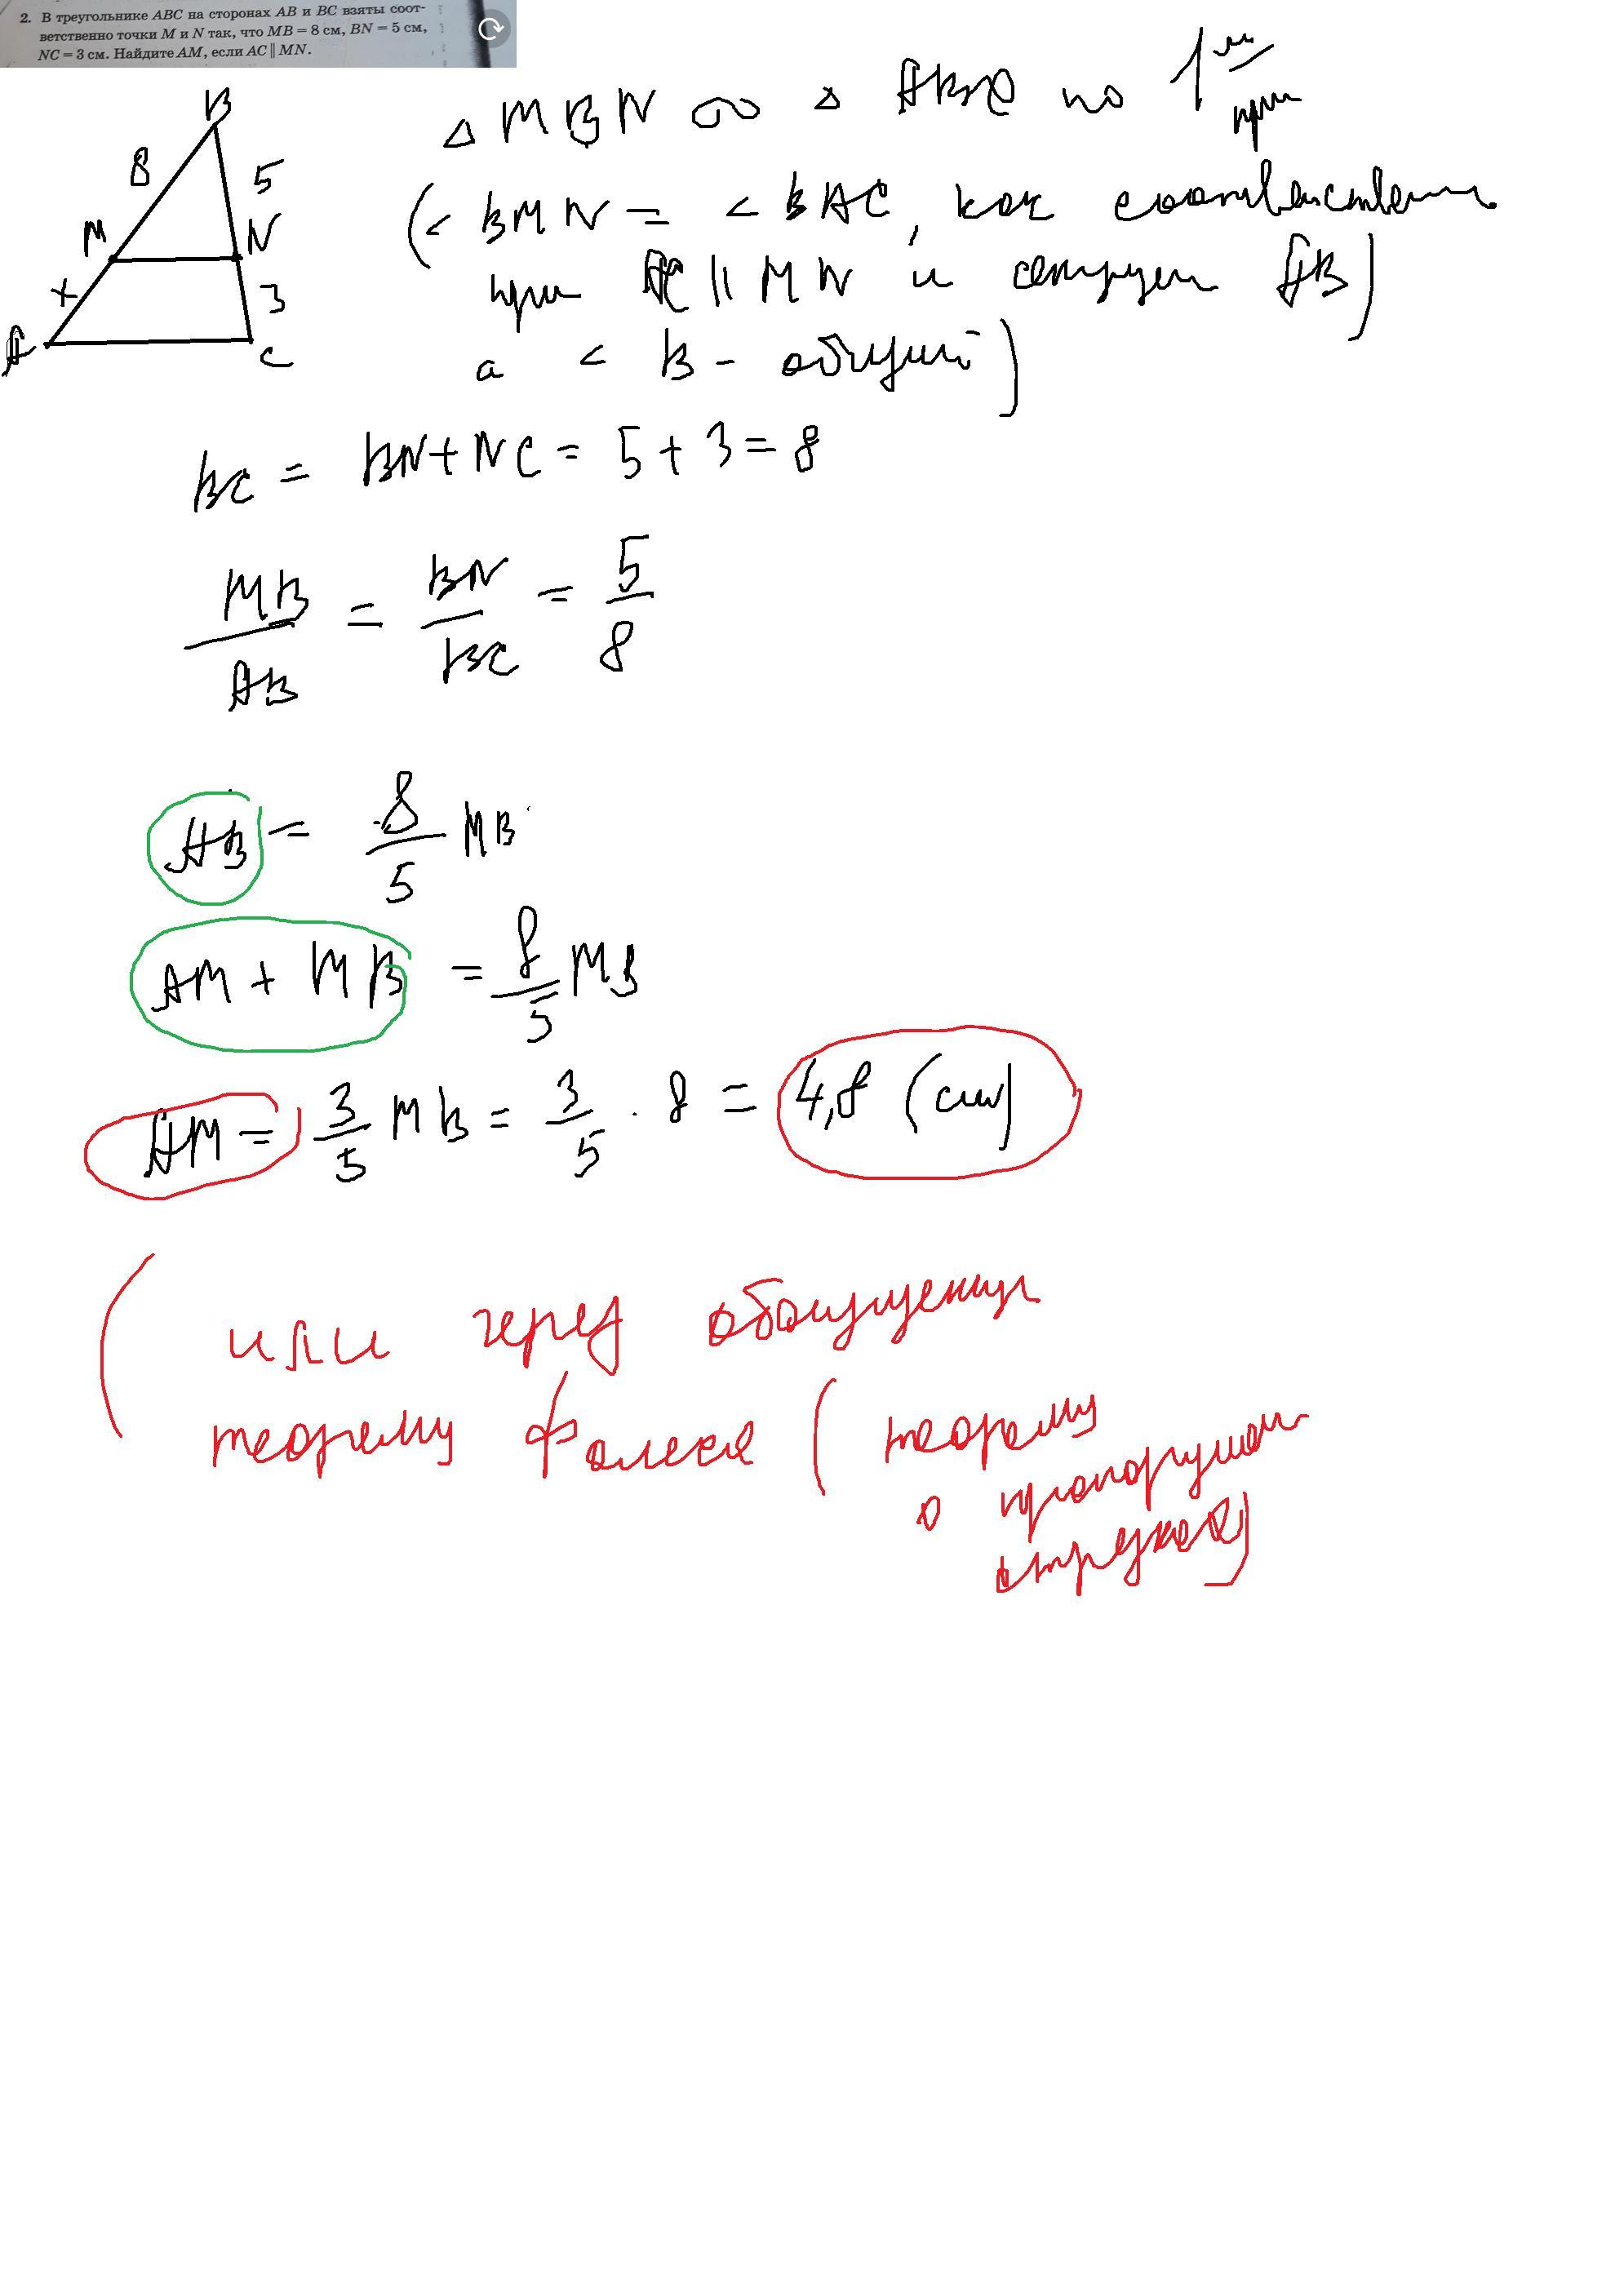 2. В треугольнике ABC на сторонах AB и BC взяты соот-
ветственно точки M и N так, что MB = 8 см, BN = 5 см,
NC = 3 см. Найдите AM, если AC ∥ MN.
B
8
5
M
N
x
3
A
C
△ MBN ∞ △ ABC по 1
(< BMN = < BAC, как соответствен
при AC || MN и секущей AB)
а < B - общий)
BC = BN + NC = 5 + 3 = 8
MB/AB = BN/BC = 5/8
AB = 8/5 MB
AM + MB = 8/5 MB
AM = 3/5 MB = 3/5 · 8 = 4,8 (см)
( или через обобщенную
теорему Фалеса ( теорему
о пропорцион
отрезков)